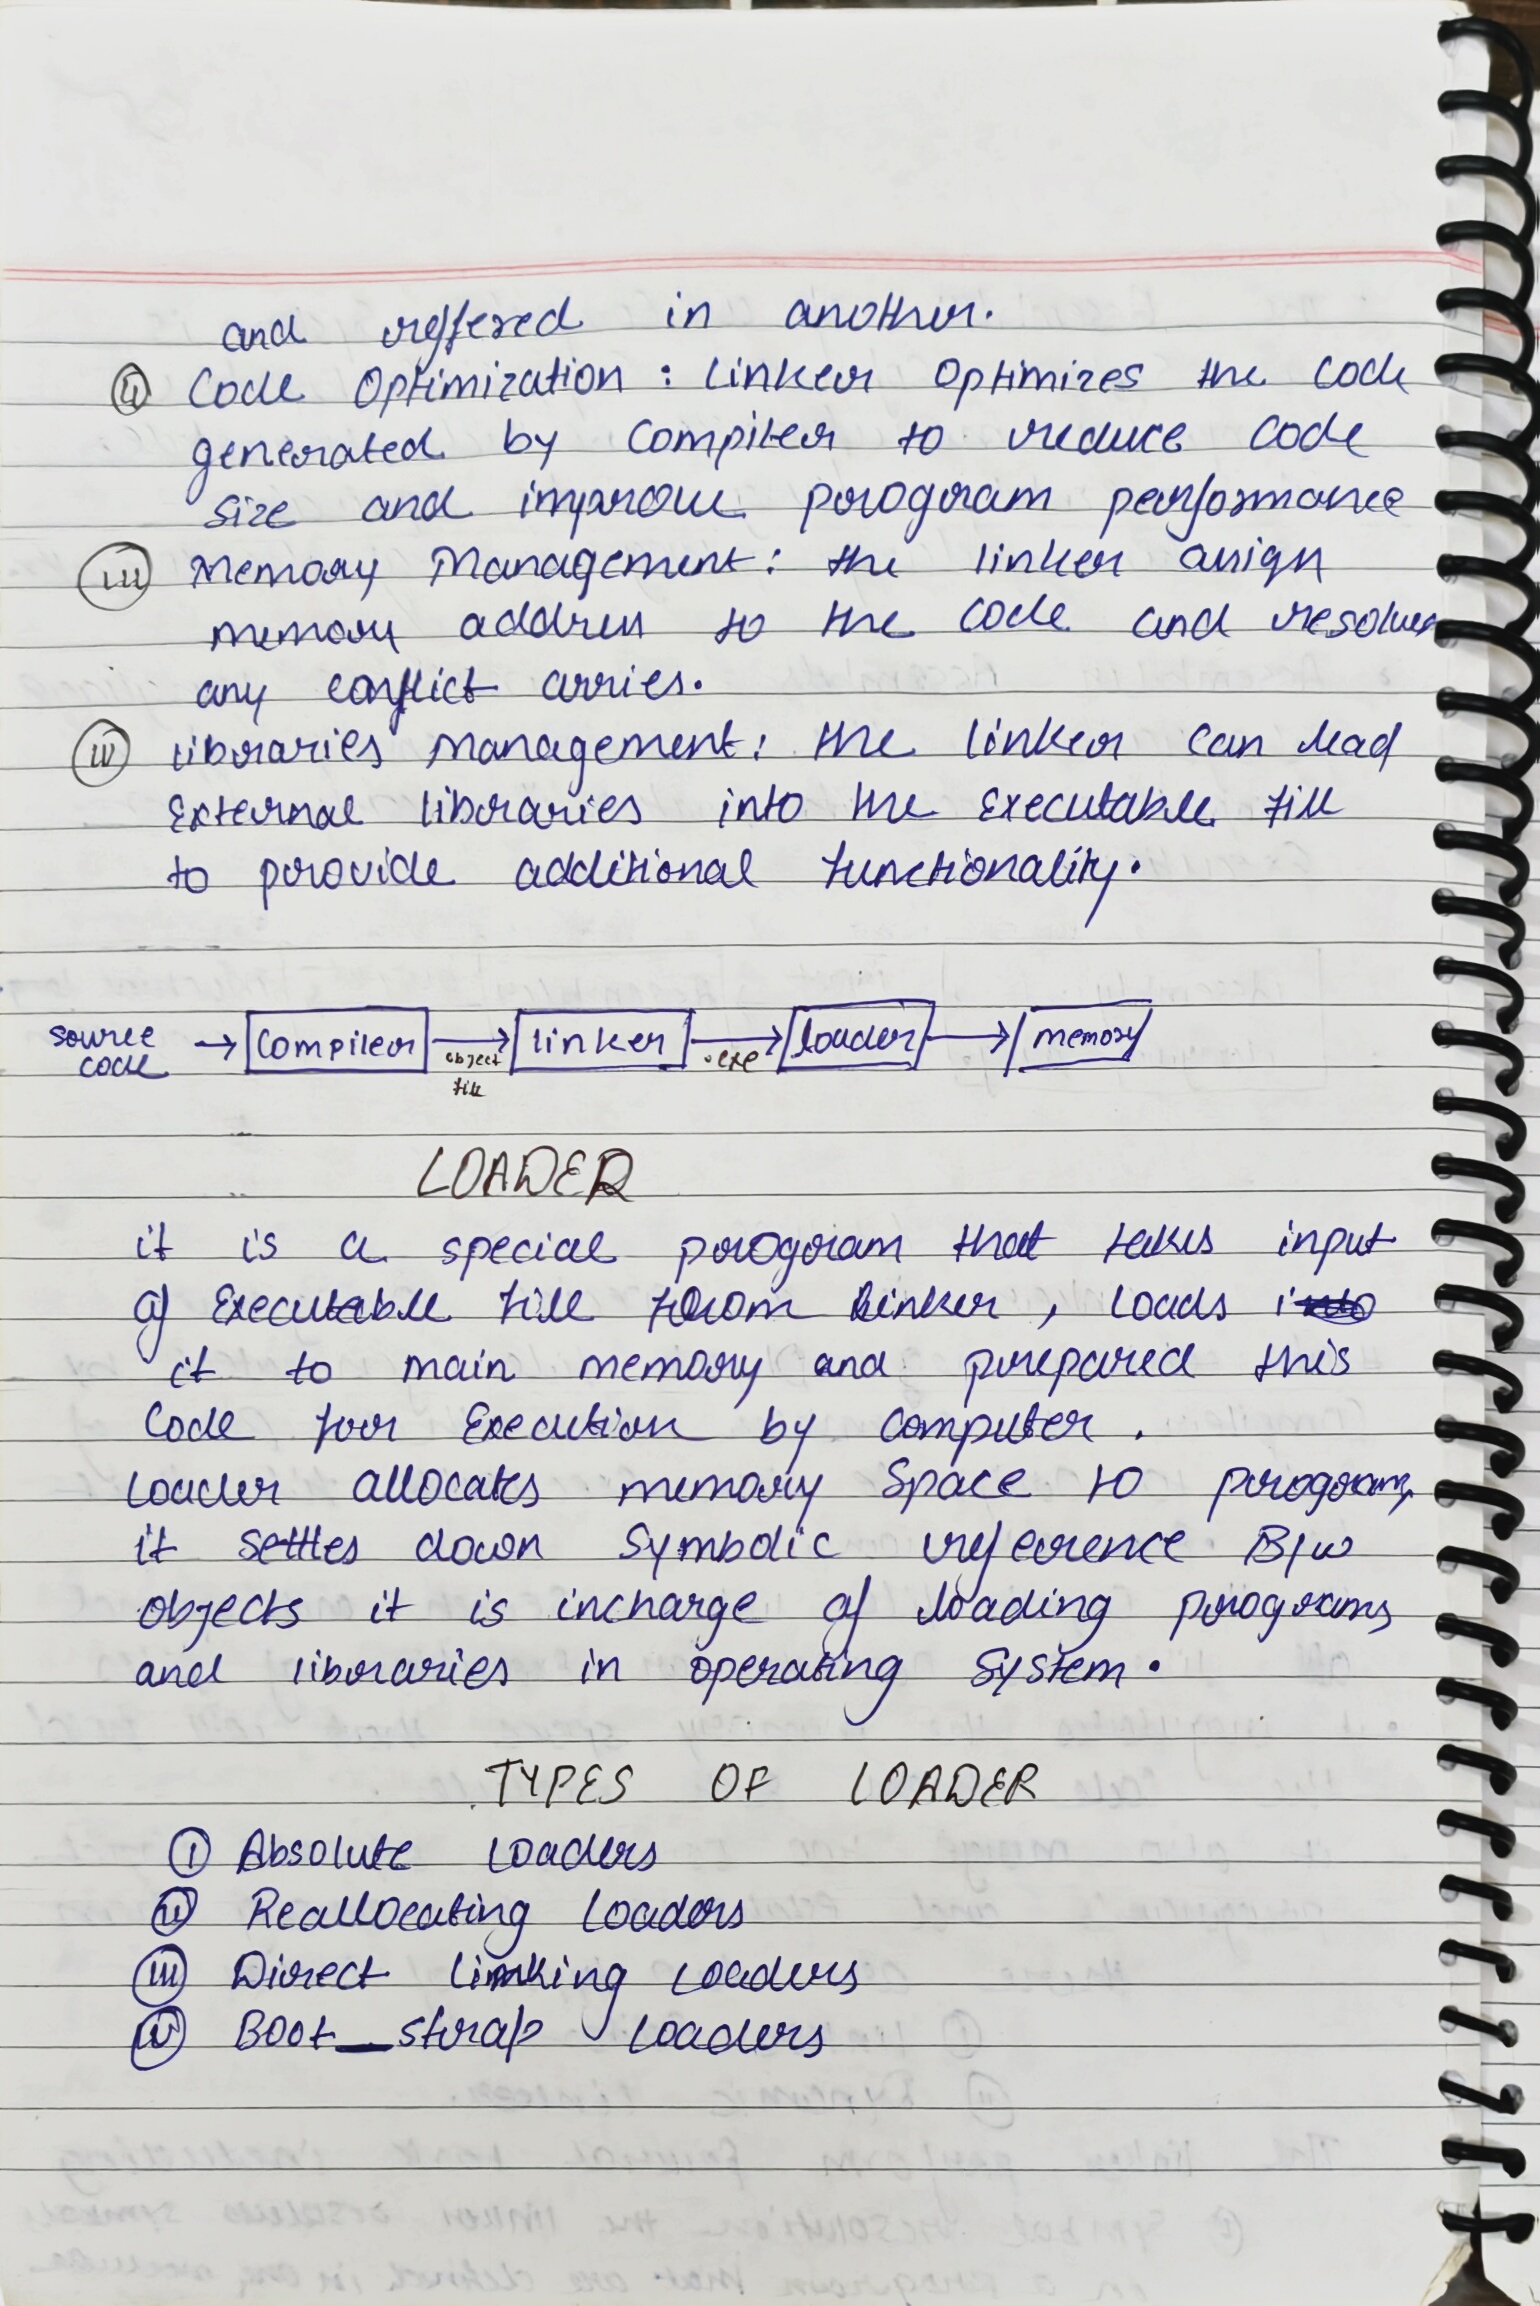 and reffered in another.
(ii) Code Optimization : Linker Optimizes the Code
generated by Compiler to reduce Code
size and improve program performance
(iii) Memory Management : the linker assign
memory address to the code and resolves
any conflict arries.
(iv) Libraries Management : the linker can load
External libraries into the Executable file
to provide additional functionality.
source code → Compiler → object file → linker → .exe → loader → memory
LOADER
it is a special program that takes input
of Executable file from linker , loads
it to main memory and prepared this
Code for Execution by Computer .
Loader allocates memory Space to program,
it settles down Symbolic reference B/w
objects it is incharge of loading programs
and libraries in operating System.
TYPES OF LOADER
(i) Absolute Loaders
(ii) Reallocating Loadors
(iii) Direct linking Loaders
(iv) Boot_strap Loaders